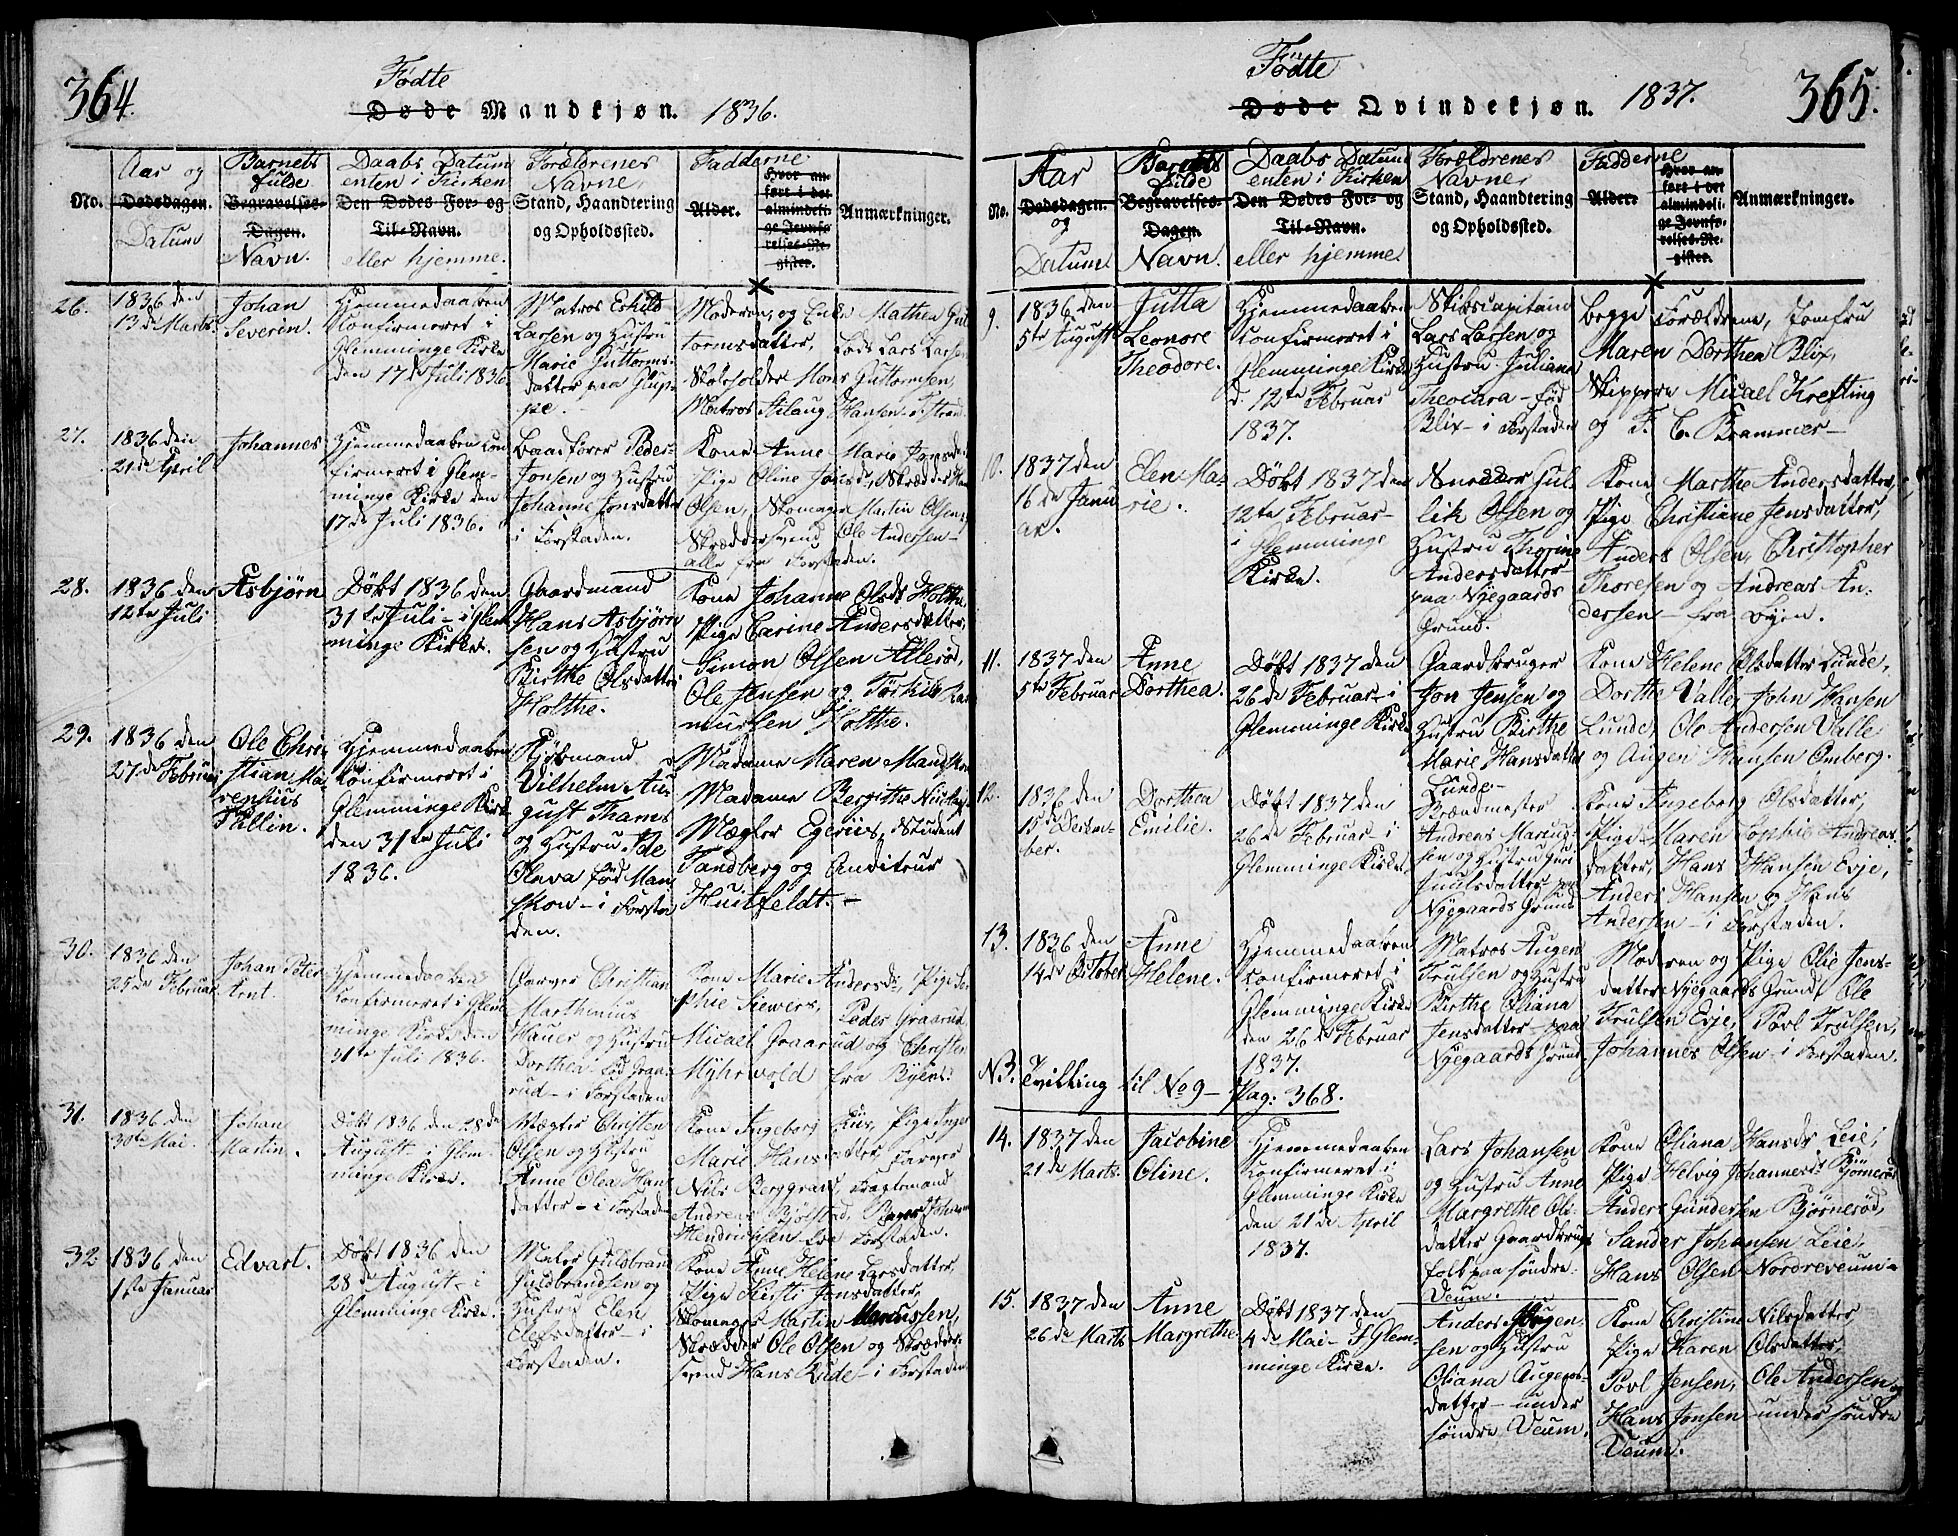 364.
Fødte
Døde Mandkjøn. 1836.
No.
Aar og
Dødsdagen.
Datum
Barnets
fulde
Begravelses-
Dagen.
Navn.
Daabs Datum
enten i Kirken
Den Dødes For- og
Til-Navn.
eller hjemme.
Forældrenes
Navne,
Stand, Haandtering
og Opholdssted.
Fadderne
Alder.
Hvor an-
ført i det
almindeli-
ge Jevnfø-
relses-Re-
gister.
Anmærkninger.
26.
1836 den
13de Marts.
Johan
Severin.
Hjemmedaaben
Confirmeret i
Glemminge Kirke
den 17de Juli 1836.
Matros Eskild
Larsen og Hustru
Marie Guttorms-
datter paa
Moderen, og Enke Mathea Gut
tormsdatter, Lods Lars Larsen
Hans Guttormsen,
Matros Aslaug Hansen
27.
1836 den
21de April
Johannes
Hjemmedaaben Con
firmeret i Glem-
minge Kirke den
17de Juli 1836.
Baadfører Peder
Jonsen og Hustru
Johanne Jonsdatter
i Forstaden.
Kone Anne Marie
Pige Oline Jonsd., Skrædder
Olsen, Skomager Martin Olsen
Skræddersvend Ole Andersen
alle fra Forstaden.
28.
1836 den
12te Juli
Asbjørn
Døbt 1836 den
31te Juli - i Glem
minge Kirke.
Gaardmand
Hans Asbjørn
sen og Hustru
Birthe Olsdatter
Holthe.
Kone Johanne Olsdr Holthe
Pige Carine Andersdatter,
Simon Olsen Allerød,
Ole Jensen og Torkild Ras
mussen Holthe.
29.
1836 den
27de Februar
Ole Chri
stian Ma
renhius
Pallin.
Hjemmedaaben
Confirmeret i
Glemminge Kirk
den 31te Juli
1836.
Kjøbmand
Vilhelm Au
gust Thams
og Hustru
Olava fød Man
skow - i Forsta
den.
Madame Maren
Madame Bergithe
Mægler Egeriis, Student
Tandberg og Auditeur
Huitfeldt. -
30.
1836 den
25de Februar
Johan Peter
Hjemmedaaben
Confirmeret i Glem
minge Kirke den
31te Juli 1836.
Farver Christian
Marthinius
Hauer og Hustru
Dorthea fød Graa
rud - i Forstaden
Kone Marie Andersdr, Pige So
phie Siewers, Peder Graarud
Micael Graarud og Christen
Myhrwold fra Byen.
31.
1836 den
30te Mai.
Johan
Martin.
Døbt 1836 den 28de
August - i Glem-
minge Kirke.
Mægler Christen
Olsen og Hustru
Anne Olea Hans
datter - i Forstaden
Kone Ingeborg Lius, Pige Inger
Marie Hansdatter, Farver
Nils Berggrav, Fragtmand
Andreas Bjølstad,
Hendrichsen fra Forstaden.
32
1836 den
1ste Januar
Edvart.
Døbt 1836 den
28de August - i
Glemminge Kirke.
Maler Guldbrand
Guldbrandsen og
Hustru Elen
Olefsdatter - i
Forstaden.
Kone Anne Helene Larsdatter,
Pige Kirsti Jonsdatter,
Skomager Martin Marcussen,
Skrædder Ole Olsen og Skrædder
svend Hans Lude - i Forstaden
365.
Födte
Døde Qvindekjøn. 1837.
No.
Aar
Dødsdagen.
og
Datum
Barnets
fulde
Begravelses-
Dagen.
Navn.
Daabs Datum
enten i Kirken
Den Dødes For- og
Til-Navn.
eller hjemme
Forældrenes
Navne,
Stand, Haandtering
og Opholdssted.
Fadderne
Alder.
Hvor an-
ført i det
almindeli-
ge Jevnfø-
relses-Re-
gister.
Anmærkninger.
9.
1836 den
5te August
Jutta
Leonore
Theodore.
Hjemmedaaben
Confirmeret i
Glemminge Kirke
d. 12te Februar
1837.
Skibscapitain
Lars Larsen og
Hustru Juliana
Theodora - fød
Blix - i Forstaden
Begge Forældrene, Jomfru
Maren Dorthea Blix,
Skippere Micael Krefting
og F. C. Brammer -
10.
1837 den
16de Janu
ar.
Elen Ma-
rie.
Döbt 1837 den
12te Februar -
i Glemminge
Kirke.
Snedker Gul
lik Olsen og
Hustru Thorine
Andersdatter
paa Nyegaards
Grund.
Kone Marthe Andersdatter,
Pige Christiane Jensdatter,
Anders Olsen, Christopher
Thoresen og Andreas An-
dersen - fra Byen.
11.
1837 den
5te Februar
Anne
Dorthea.
Döbt 1837 den
26de Februar - i
Glemminge Kirke
Gaardbruger
Jon Jensen og
Hustru Birthe
Marie Hansdatter
Lunde -
Kone Helene Olsdatter Lunde,
Dorthe Valle, John Hansen
Lunde, Ole Andersen Valle
og Augen Hansen Omberg.
12.
1836 den
15de Decem-
ber.
Dorthea
Emilie.
Döbt 1837 den
26de Februar - i
Glemminge Kirke,
Brændmester
Andreas Marcus-
sen og Hustru Guri
Juulsdatter - paa
Nyegaards Grund
Kone Ingeborg Olsdatter,
Pige Maren Sophie Andreas
datter, Hans Hansen Evje,
Anders Hansen & Hans
Andersen - i Forstaden.
13.
1836 den
14de October
Anne
Helene.
Hjemmedaaben
Confirmeret i
Glemminge Kirke
den 26de Februar
1837.
Matros Augen
Trulsen og Hustru
Birthe Oliana
Jensdatter - paa
Nyegaards Grund
Moderen og Pige Olie Jens-
datter Nyegaards Grund, Ole
Trulsen Evje, Povl Trulsen,
Johannes Olsen - i Forstaden.
NB. Tvilling til No 9 - Pag: 368.
14.
1837 den
21de Marts
Jacobine
Oline.
Hjemmedaaben
Confirmeret i
Glemminge Kirke
den 21de April
1837.
Lars Johansen
og Hustru Anne
Margrethe Ols
datter Gaardbruger
folk paa søndre
Veum.
Kone Oliana Hansdr Leie,
Pige Helvig Johannesdr Bjørnerød
Anders Gundersen Bjørnerød,
Sander Johansen Leie,
Hans Olsen Nordreveum -
15.
1837 den
26de Marts
Anne
Margrethe
Döbt 1837 den
4de Mai - i Glem-
minge Kirke.
Anders Jörgen
sen og Hustru
Oliana Augens-
datter - under
søndre Veum.
Kone Christine Nilsdatter,
Pige Karen Olsdatter,
Povl Jensen, Ole Andersen og
Hans Jonsen - under søndre
Veum.